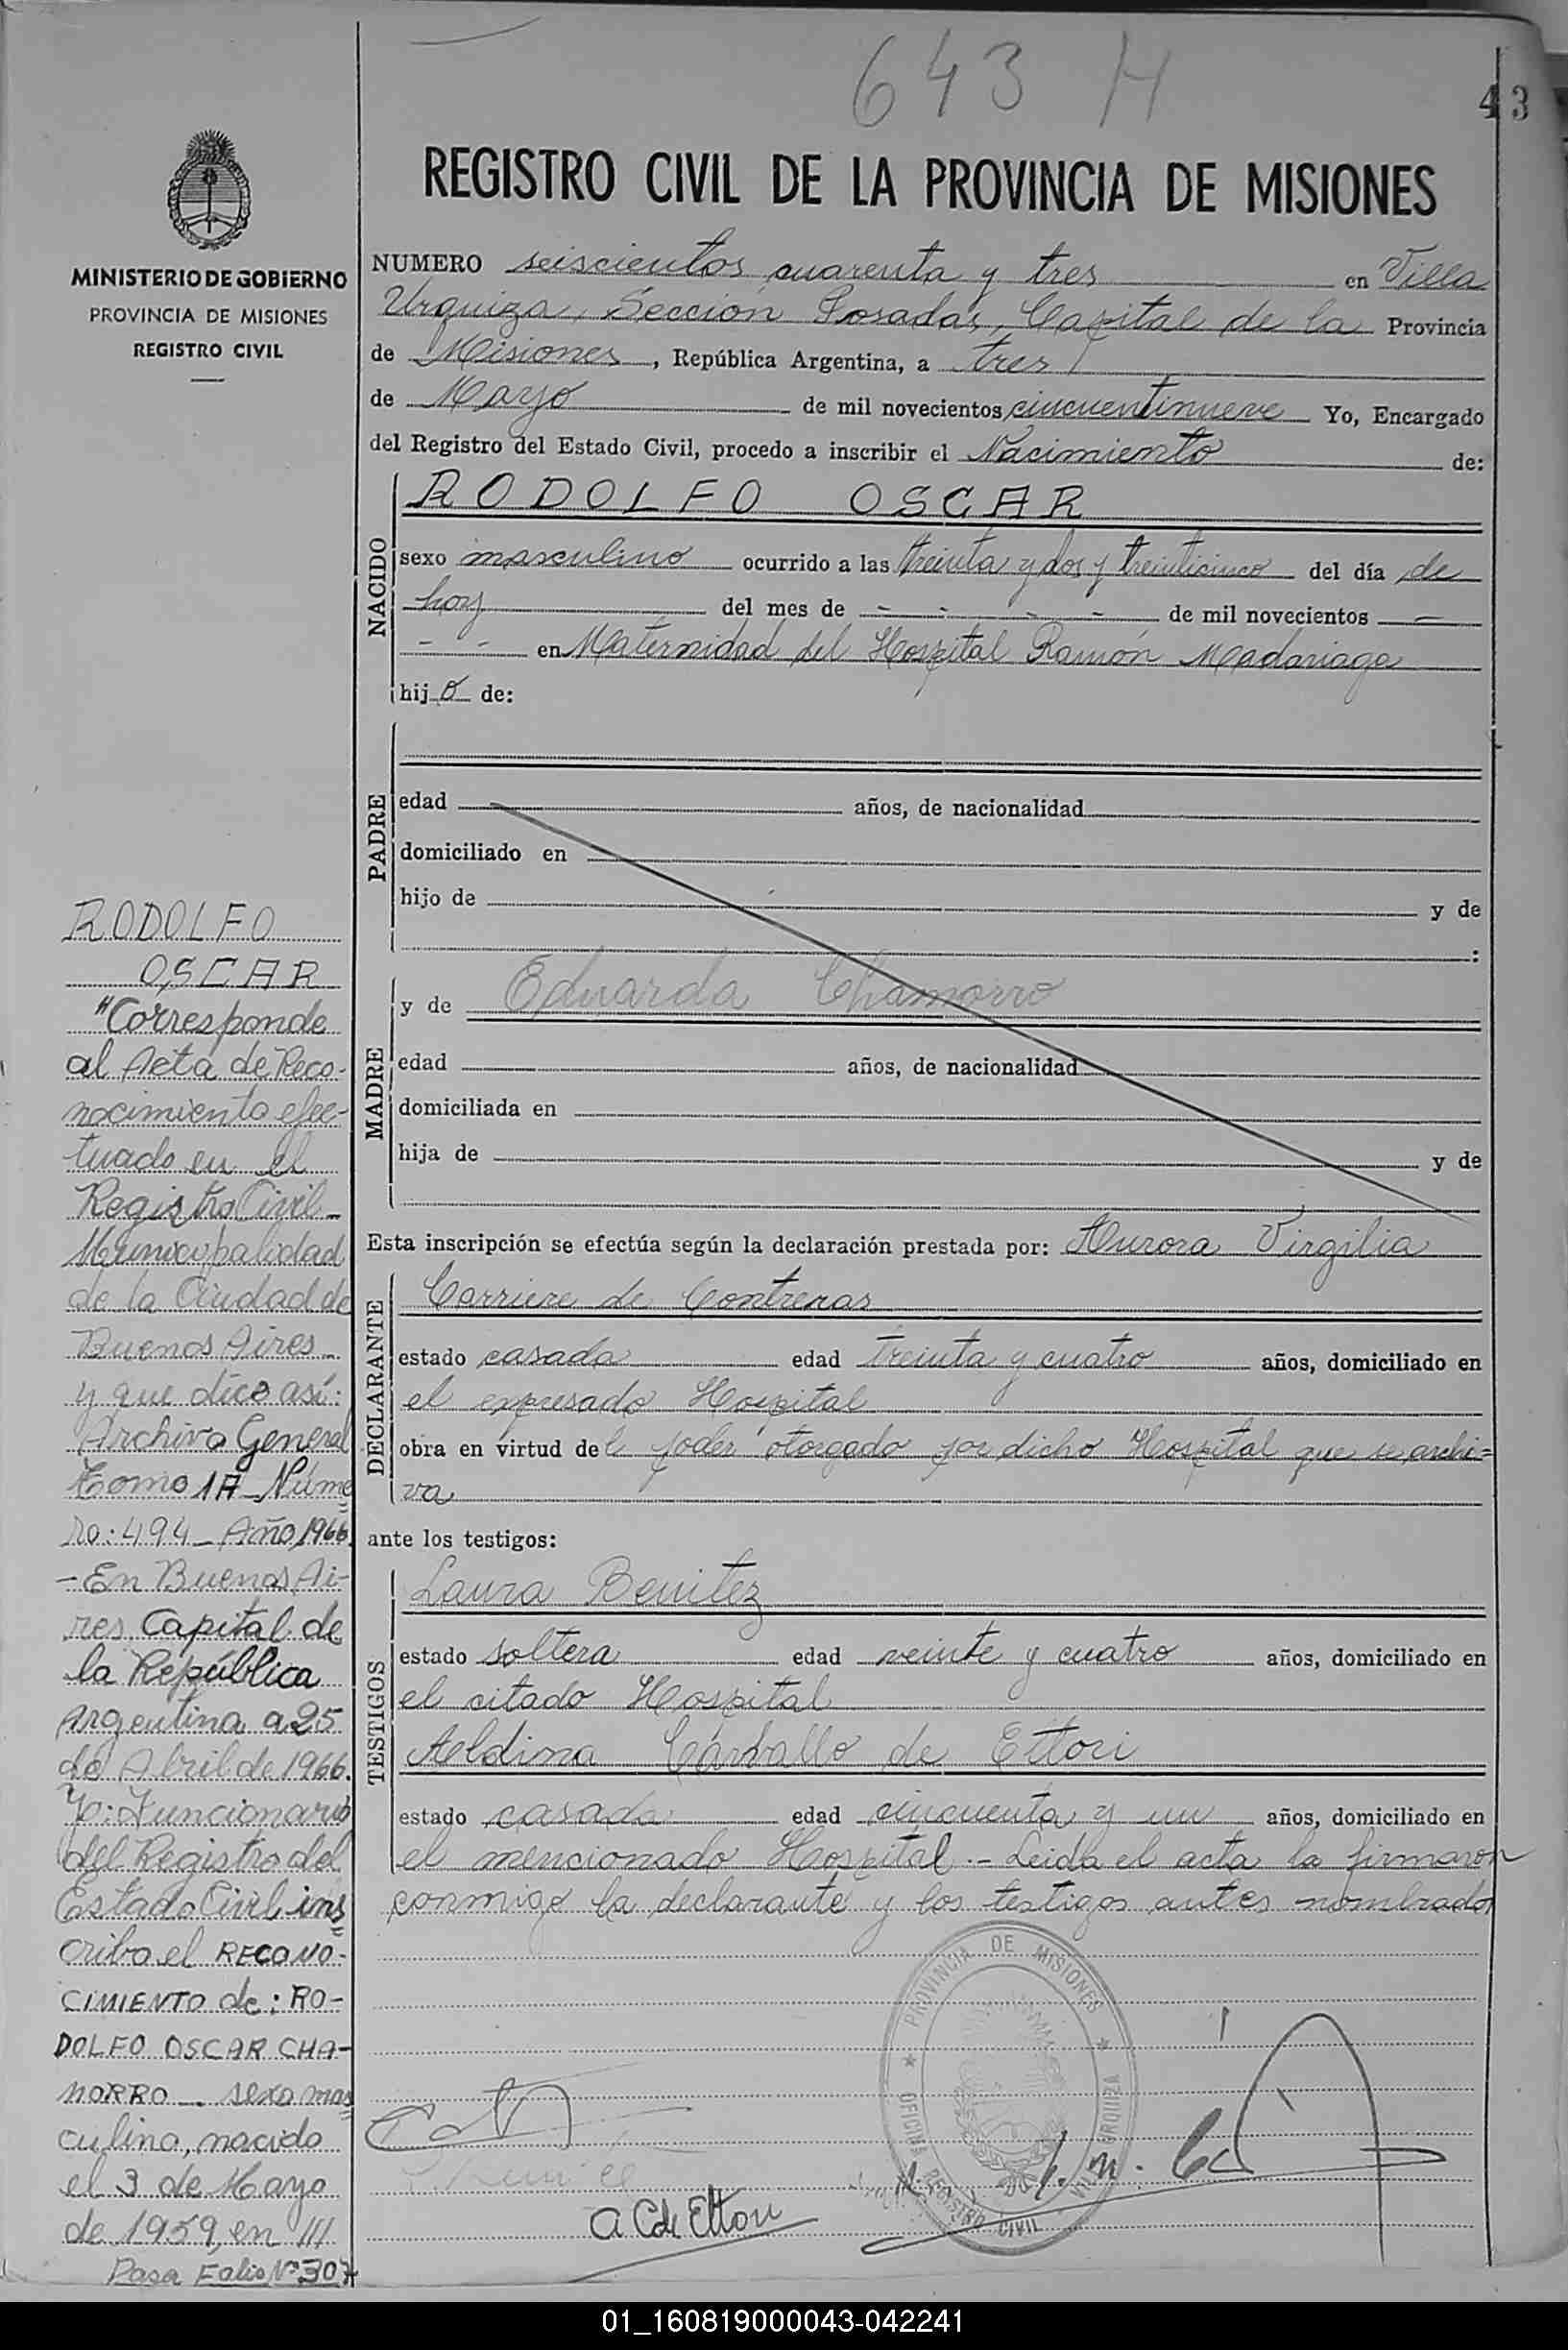 643 H
43
MINISTERIO DE GOBIERNO
PROVINCIA DE MISIONES
REGISTRO CIVIL
REGISTRO CIVIL DE LA PROVINCIA DE MISIONES
NUMERO seiscientos cuarenta y tres en Villa
Urquiza, Sección Posadas, Capital de la Provincia
de Misiones, República Argentina, a tres
de Mayo de mil novecientos cincuentinueve Yo, Encargado
del Registro del Estado Civil, procedo a inscribir el Nacimiento de:
NACIDO
RODOLFO OSCAR
sexo masculino ocurrido a las treinta y dos y treinticinco del día de
hoy del mes de - - - - de mil novecientos -
- - en Maternidad del Hospital Ramón Madariaga
hijo de:
PADRE
edad años, de nacionalidad
domiciliado en
hijo de y de
:
MADRE
y de Eduarda Chamorro
edad años, de nacionalidad
domiciliada en
hija de y de
Esta inscripción se efectúa según la declaración prestada por: Aurora Virgilia
DECLARANTE
Carriere de Contreras
estado casada edad treinta y cuatro años, domiciliado en
el expresado Hospital
obra en virtud del poder otorgado por dicho Hospital que se archi=
va
ante los testigos:
TESTIGOS
Laura Benitez
estado soltera edad veinte y cuatro años, domiciliado en
el citado Hospital
Aeldima Carballo de Ettori
estado casada edad cincuenta y un años, domiciliado en
el mencionado Hospital.- Leida el acta la firmaron
conmigo la declarante y los testigos antes nombrados
PROVINCIA DE MISIONES
OFICINA REGISTRO CIVIL VILLA URQUIZA
A C de Ettori
RODOLFO
OSCAR
"Corresponde
al Acta de Reco-
nocimiento efec-
tuado en el
Registro Civil-
Municipalidad
de la Ciudad de
Buenos Aires-
y que dice así:
Archivo General
Tomo 1A-Núme
ro: 494-Año 1966.
-En Buenos Ai-
res Capital de
la República
Argentina a 25
de Abril de 1966.
Yo: Funcionario
del Registro del
Estado Civil ins
cribo el RECONO-
CIMIENTO de: RO-
DOLFO OSCAR CHA-
MORRO-sexo mas
culino, nacido
el 3 de Mayo
de 1959, en ///
Pasa Folio Nº 307
01_160819000043-042241